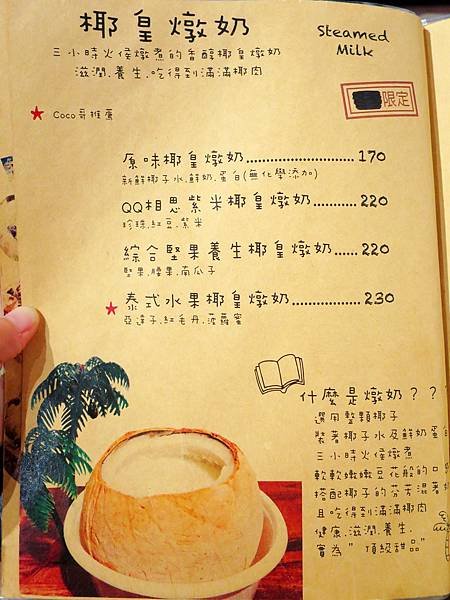 椰皇燉奶
Steamed
Milk
三小時火侯燉煮的香醇椰皇燉奶
滋潤.養生.吃得到滿滿椰肉
限定
★ Coco哥推薦
原味椰皇燉奶............................170
新鮮椰子水.鮮奶.蛋白(無化學添加)
QQ相思紫米椰皇燉奶...........220
珍珠.紅豆.紫米
綜合堅果養生椰皇燉奶......220
堅果.腰果.南瓜子
★ 泰式水果椰皇燉奶..................230
亞達子.紅毛丹.菠蘿蜜
什麼是燉奶??
選用整顆椰子
裝著椰子水及鮮奶蛋白
三小時火侯燉煮
軟軟嫩嫩豆花般的
搭配椰子的芬芳混著
且吃得到滿滿椰肉
健康.滋潤.養生.
實為"頂級甜品"